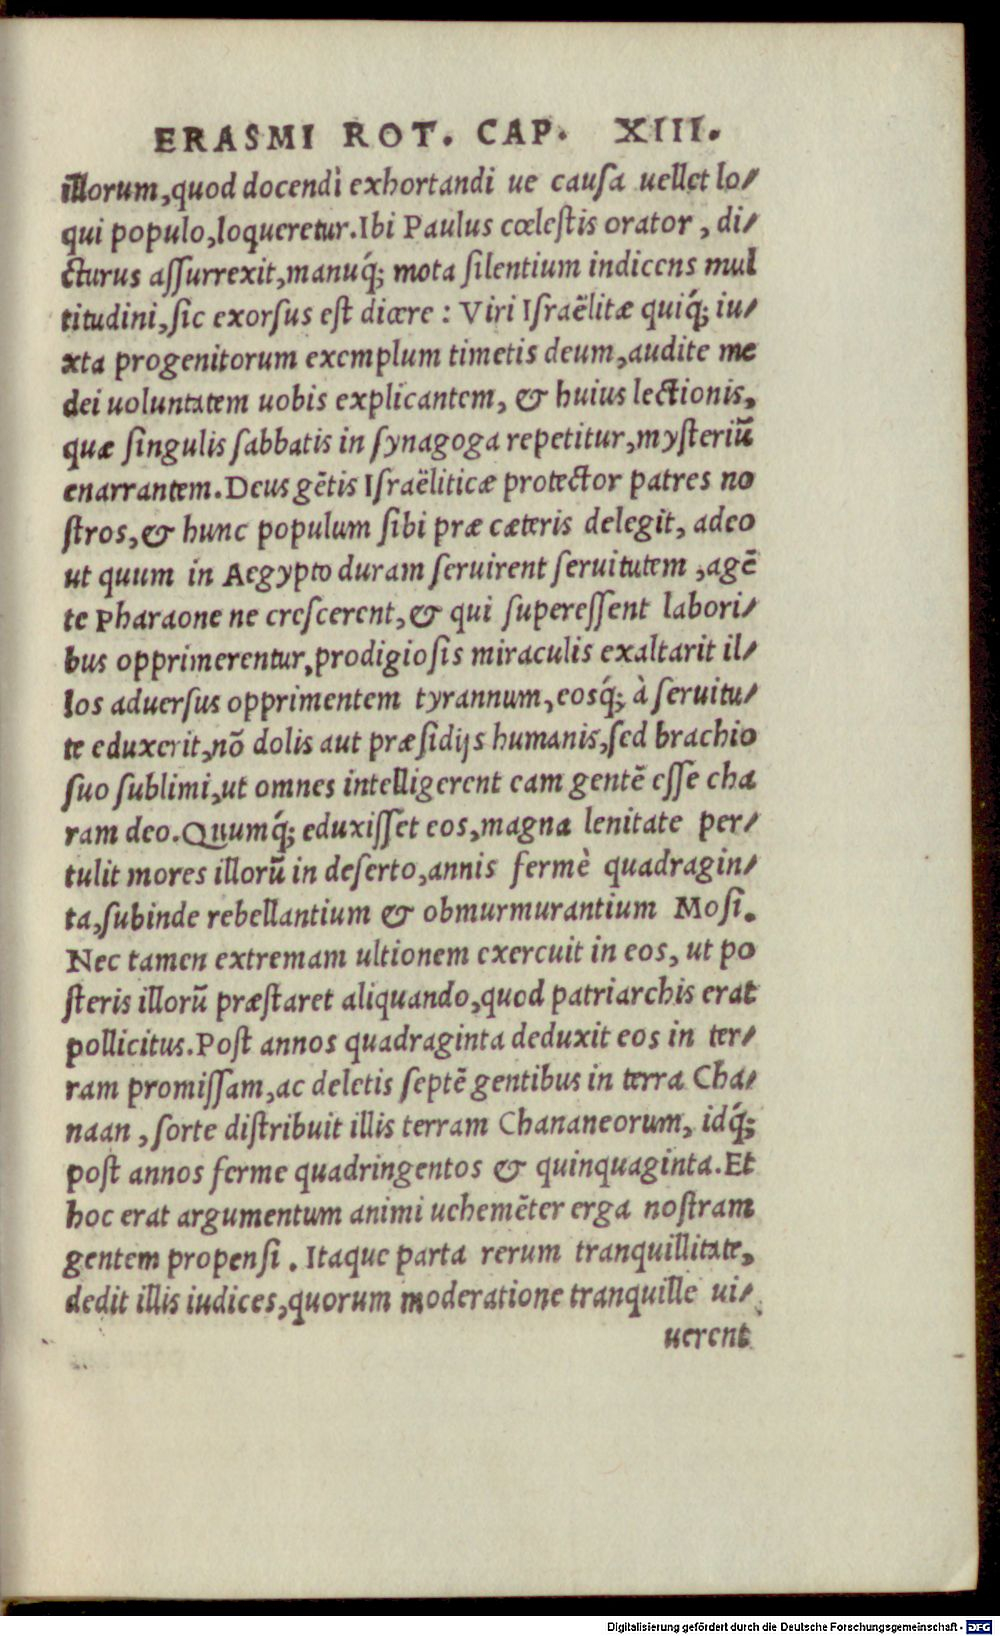 ERASMI ROT. CAP. XIII.
illorum,quod docendi exhortandi ue causa uellet lo⸗
qui populo,loqueretur.Ibi Paulus cœlestis orator , di⸗
cturus assurrexit,manuq́; mota silentium indicens mul
titudini,sic exorsus est dicere : Viri Israëlitæ quiq́; iu⸗
xta progenitorum exemplum timetis deum,audite me
dei uoluntatem uobis explicantem, & huius lectionis,
quæ singulis sabbatis in synagoga repetitur,mysteriũ
enarrantem.Deus gẽtis Israëliticæ protector patres no
stros,& hunc populum sibi præ cæteris delegit, adeo
ut quum in Aegypto duram seruirent seruitutem ,agẽ
te Pharaone ne crescerent,& qui superessent labori⸗
bus opprimerentur,prodigiosis miraculis exaltarit il⸗
los aduersus opprimentem tyrannum,eosq́; à seruitu⸗
te eduxerit,nõ dolis aut præsidijs humanis,sed brachio
suo sublimi,ut omnes intelligerent eam gentẽ esse cha
ram deo.Quumq́; eduxisset eos,magna lenitate per⸗
tulit mores illorũ in deserto,annis fermè quadragin⸗
ta,subinde rebellantium & obmurmurantium Mosi.
Nec tamen extremam ultionem exercuit in eos, ut po
steris illorũ præstaret aliquando,quod patriarchis erat
pollicitus.Post annos quadraginta deduxit eos in ter⸗
ram promissam,ac deletis septẽ gentibus in terra Cha⸗
naan , sorte distribuit illis terram Chananeorum, idq́;
post annos ferme quadringentos & quinquaginta.Et
hoc erat argumentum animi uehemẽter erga nostram
gentem propensi . Itaque parta rerum tranquillitate,
dedit illis iudices,quorum moderatione tranquille ui⸗
uerent
Digitalisierung gefördert durch die Deutsche Forschungsgemeinschaft - DFG